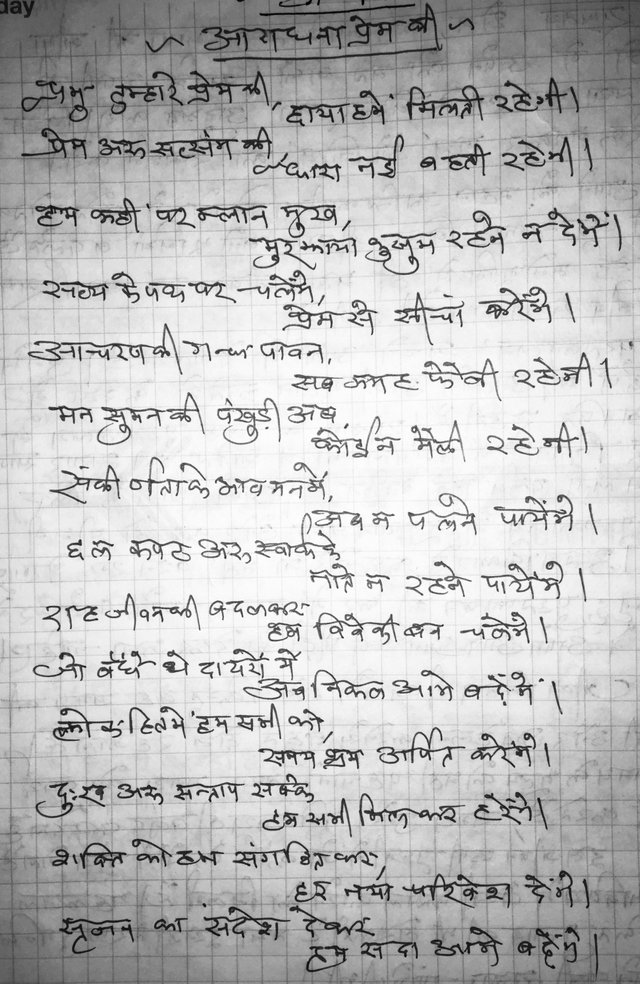 day
आराधना प्रेम की
प्रभु तुम्हारे प्रेम की,
छाया हमें मिलती रहेगी।
प्रेम अरु सत्संग की
धारा नई बहती रहेगी।
हम कहीं पर म्लान मुख,
मुरझाया कुसुम रहने न देंगे।
सत्य के पथ पर चलेंगे,
प्रेम से सींचा करेंगे।
आचरण की गन्ध पावन,
सब जगह फैली रहेगी।
मन सुमन की पंखुड़ी अब,
कोई न मैली रहेगी।
संकीर्णता के भाव मन में,
अब न पलने पायेंगे।
छल कपट अरु स्वार्थ के
नाते न रहने पायेंगे।
राह जीवन की बदलकर
हम विवेकी बन चलेंगे।
जो बँधे थे दायरों में
अब निकल आगे बढ़ेंगे।
लोक हित में हम सभी को,
समय श्रम अर्पित करेंगे।
दुःख अरु सन्ताप सबके
हम सभी मिलकर हरेंगे।
शक्ति को हम संगठित कर,
हर नया परिवेश देंगे।
सृजन का संदेश देकर
हम सदा आगे बढ़ेंगे।